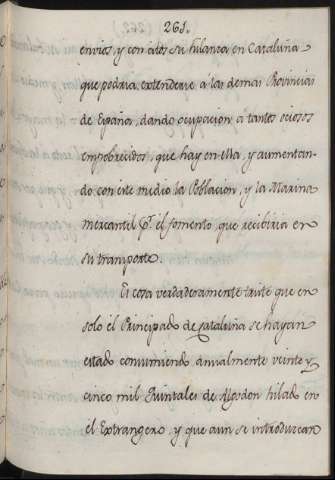 261.
envios, y con ellos su hilanza en Cataluña
que podria extenderse à las demas Provincias
de España, dando ocupacion à tantos ociosos
empobrecidos, que hay en ella, y aumentan-
do con este medio la Poblacion, y la Marina
mercantil pr. el fomento, que recibiria en
su transporte.
Es cosa verdaderamente triste que en
solo el Principado de Cataluña se hayan
estado consumiendo anualmente veinte y
cinco mil Quintales de Algodon hilado en
el Extrangero, y que aun se introduzcan